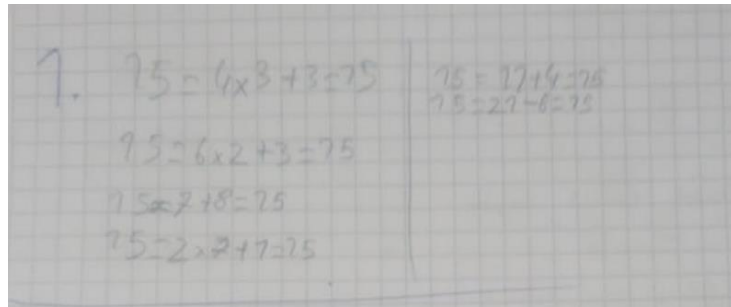 1. 15 = 4x3+3=15
15=6x2+3=15
15=7+8=15
15=2x7+1=15
15 = 11+4=15
15=21-6=15